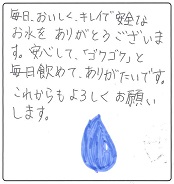 毎日、おいしく、キレイで安全な
お水を ありがとうございま
す。安心して、「ゴクゴク」と
毎日飲めて、ありがたいです。
これからもよろしくお願い
します。